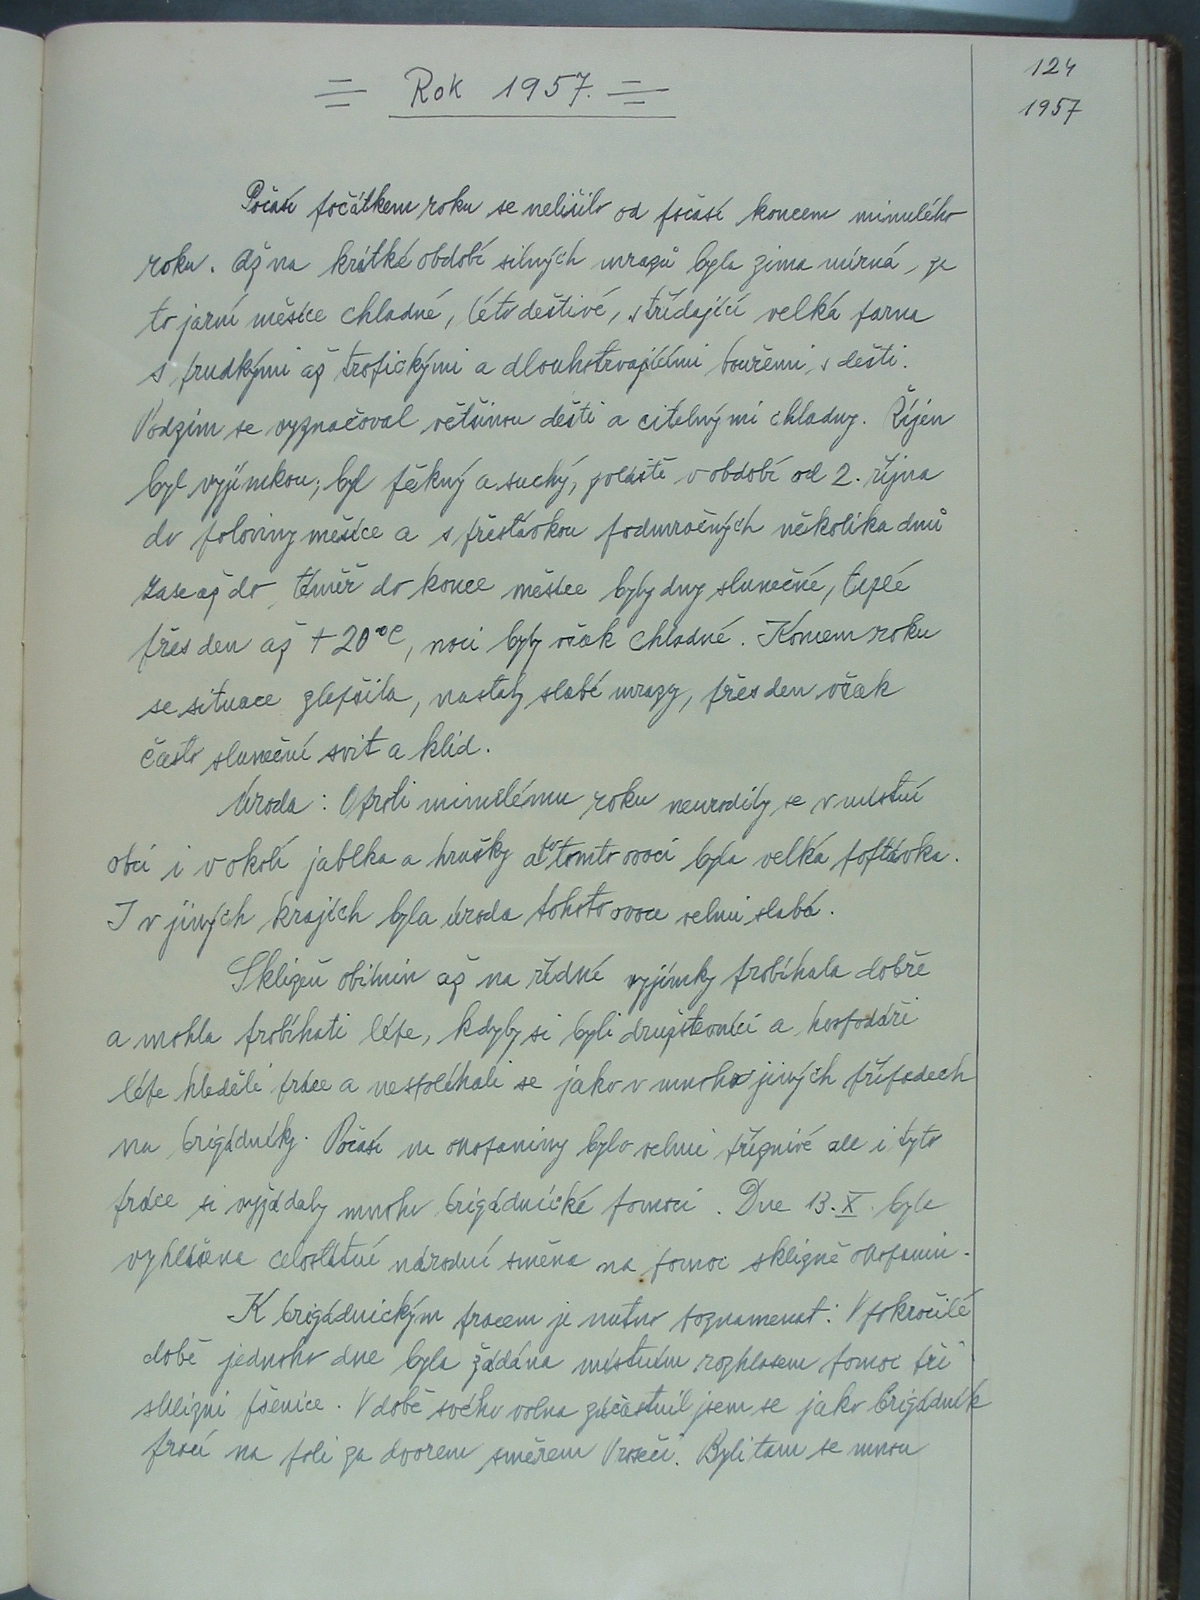 124
1957
Rok 1957.
Počasí počátkem roku se nelišilo od počasí koncem minulého
roku. Až na krátké období silných mrazů byla zima mírná, za
to jarní měsíce chladné, léto deštivé, střídající velká parna
s prudkými až tropickými a dlouhotrvajícími bouřemi s dešti.
Podzim se vyznačoval většinou dešti a citelnými chladny. Říjen
byl vyjímkou; byl pěkný a suchý, zvláště v období od 2. října
do poloviny měsíce a s přestávkou podmračných několika dnů
zase až do téměř do konce měsíce byly dny slunečné, teplé
přes den až + 20°C, noci byly však chladné. Koncem roku
se situace zlepšila, nastaly slabé mrazy, přes den však
často sluneční svit a klid.
Úroda: Oproti minulému roku neurodily se v místní
obci i v okolí jablka a hrušky a po tomto ovoci byla velká poptávka.
I v jiných krajích byla úroda tohoto ovoce velmi slabá.
Sklizeň obilnin až na řídné vyjímky probíhala dobře
a mohla probíhati lépe, kdyby si byli družstevníci a hospodáři
lépe hleděli práce a nespoléhali se jako v mnoha jiných případech
na brigádníky. Počasí na okopaniny bylo velmi příznivé ale i tyto
práce si vyžádaly mnoho brigádnické pomoci. Dne 13. X. byla
vyhlášena celostátní národní směna na pomoc sklizně okopanin.
K brigádnickým pracem je nutno poznamenat: V pokročilé
době jednoho dne byla žádána místním rozhlasem pomoc při
sklizni pšenice. V době svého volna zúčastnil jsem se jako brigádník
prací na poli za dvorem směrem Vroseči. Byli tam se mnou